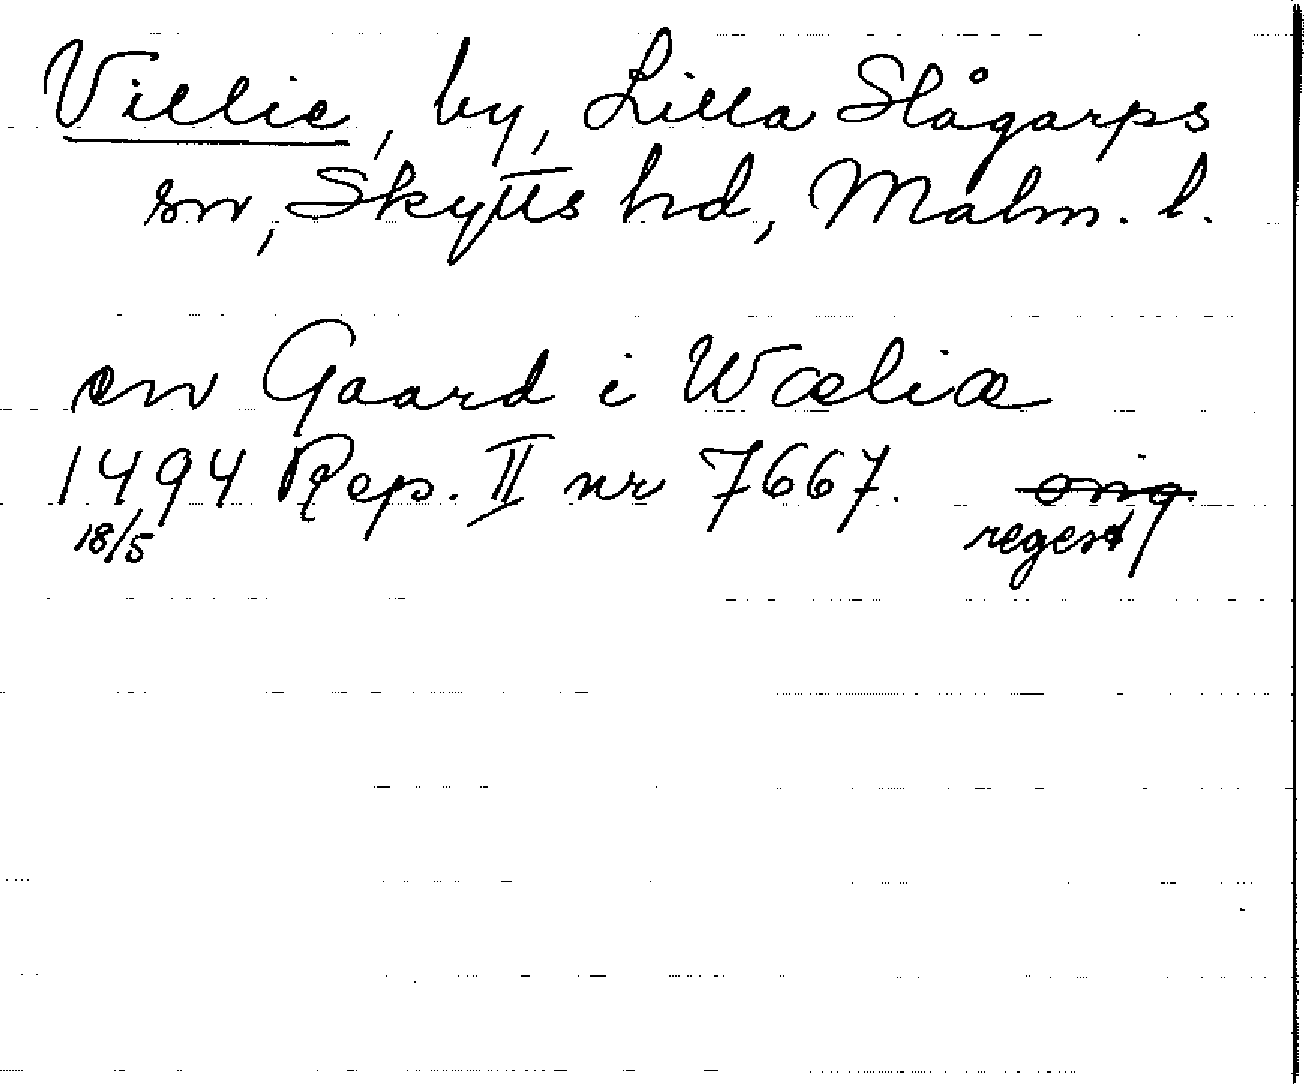 Villie, by, Lilla Slågarps
sn, Skytts hd, Malm. l.
en Gaard i Wæliæ
1494 Rep. II nr 7667. orig.
18/5 regest